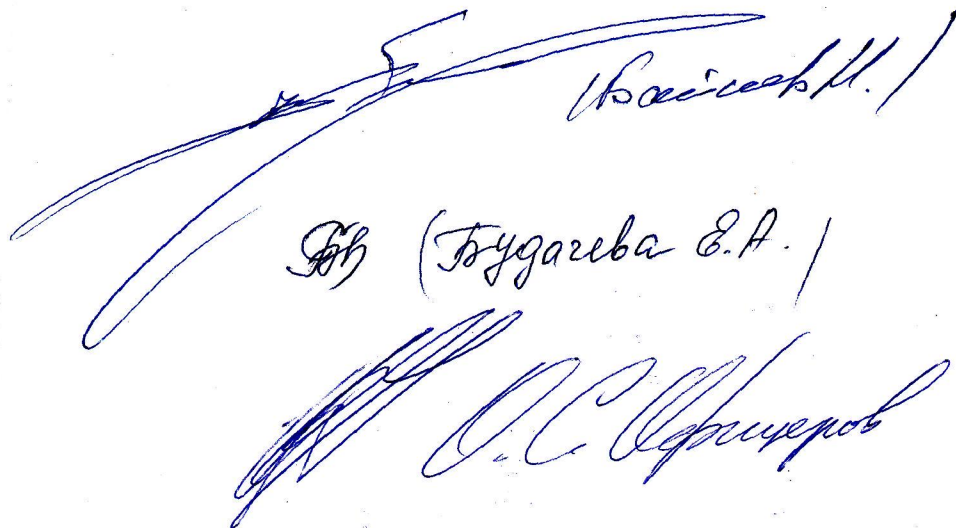 (Байшев И.)
(Будачева Е.А.)
О.С. Офицеров